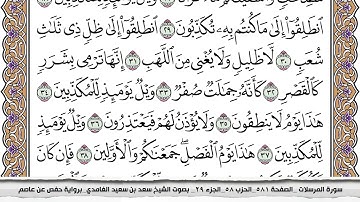 ٱنطَلِقُوٓا۟ إِلَىٰ مَا كُنتُم بِهِۦ تُكَذِّبُونَ ٢٩ ٱنطَلِقُوٓا۟ إِلَىٰ ظِلٍّ ذِى ثَلَـٰثِ
شُعَبٍ ٣٠ لَّا ظَلِيلٍ وَلَا يُغْنِى مِنَ ٱللَّهَبِ ٣١ إِنَّهَا تَرْمِى بِشَرَرٍ
كَٱلْقَصْرِ ٣٢ كَأَنَّهُۥ جِمَـٰلَتٌ صُفْرٌ ٣٣ وَيْلٌ يَوْمَئِذٍ لِّلْمُكَذِّبِينَ ٣٤
هَـٰذَا يَوْمُ لَا يَنطِقُونَ ٣٥ وَلَا يُؤْذَنُ لَهُمْ فَيَعْتَذِرُونَ ٣٦ وَيْلٌ يَوْمَئِذٍ
لِّلْمُكَذِّبِينَ ٣٧ هَـٰذَا يَوْمُ ٱلْفَصْلِ ۖ جَمَعْنَـٰكُمْ وَٱلْأَوَّلِينَ ٣٨ فَإِن كَانَ
سورة المرسلات _ الصفحة ٥٨١ _ الحزب ٥٨ _ الجزء ٢٩ _ بصوت الشيخ سعد بن سعيد الغامدي _ برواية حفص عن عاصم